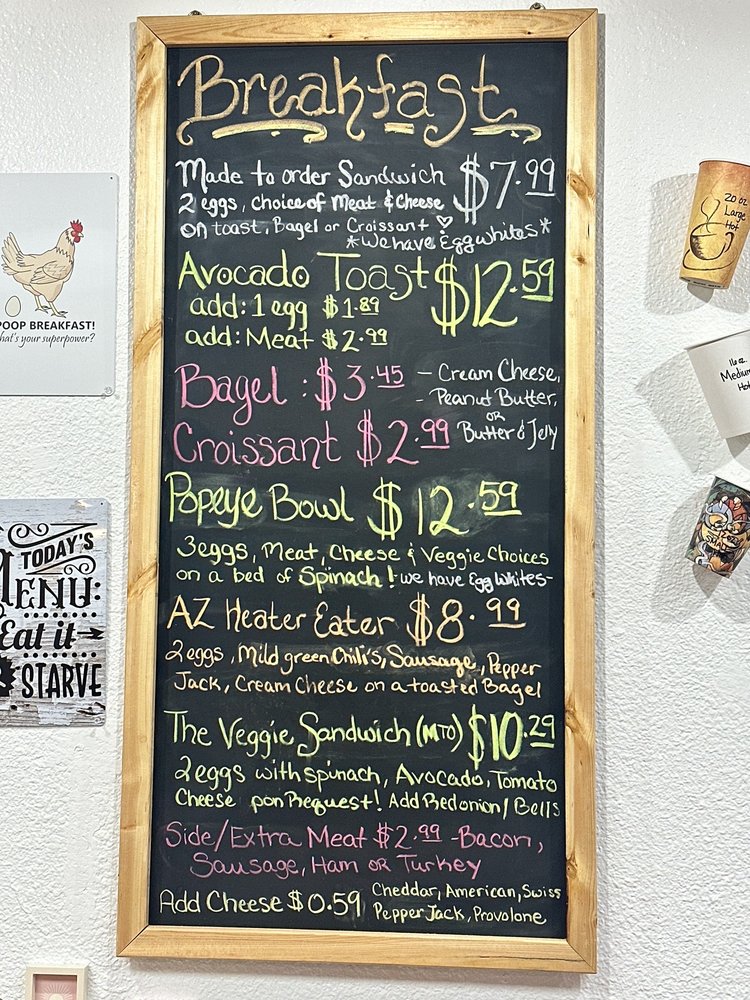 Breakfast
Made to order Sandwich $7.99
2 eggs, choice of Meat & Cheese
on toast, Bagel or Croissant ♡
*We have Egg whites*
Avocado Toast $12.59
add: 1 egg $1.89
add: Meat $2.99
Bagel: $3.45 - Cream Cheese,
- Peanut Butter,
OR
Croissant $2.99 Butter & Jely
Popeye Bowl $12.59
3 eggs, Meat, Cheese & Veggie Choices
on a bed of Spinach! we have Egg Whites-
AZ Heater Eater $8.99
2 eggs, Mild green Chili's, Sausage, Pepper
Jack, Cream Cheese on a toasted Bagel
The Veggie Sandwich (MTO) $10.29
2 eggs with spinach, Avocado, Tomato
Cheese pon Request! Add Red onion/Bells
Side/Extra Meat $2.99 -Bacon,
Sausage, Ham OR Turkey
Add Cheese $0.59 Cheddar, American, Swiss
Pepper Jack, Provolone
POOP BREAKFAST!
hat's your superpower?
TODAY'S
MENU:
Eat it
STARVE
20 oz
Large
Hot
16 oz.
Medium
Hot